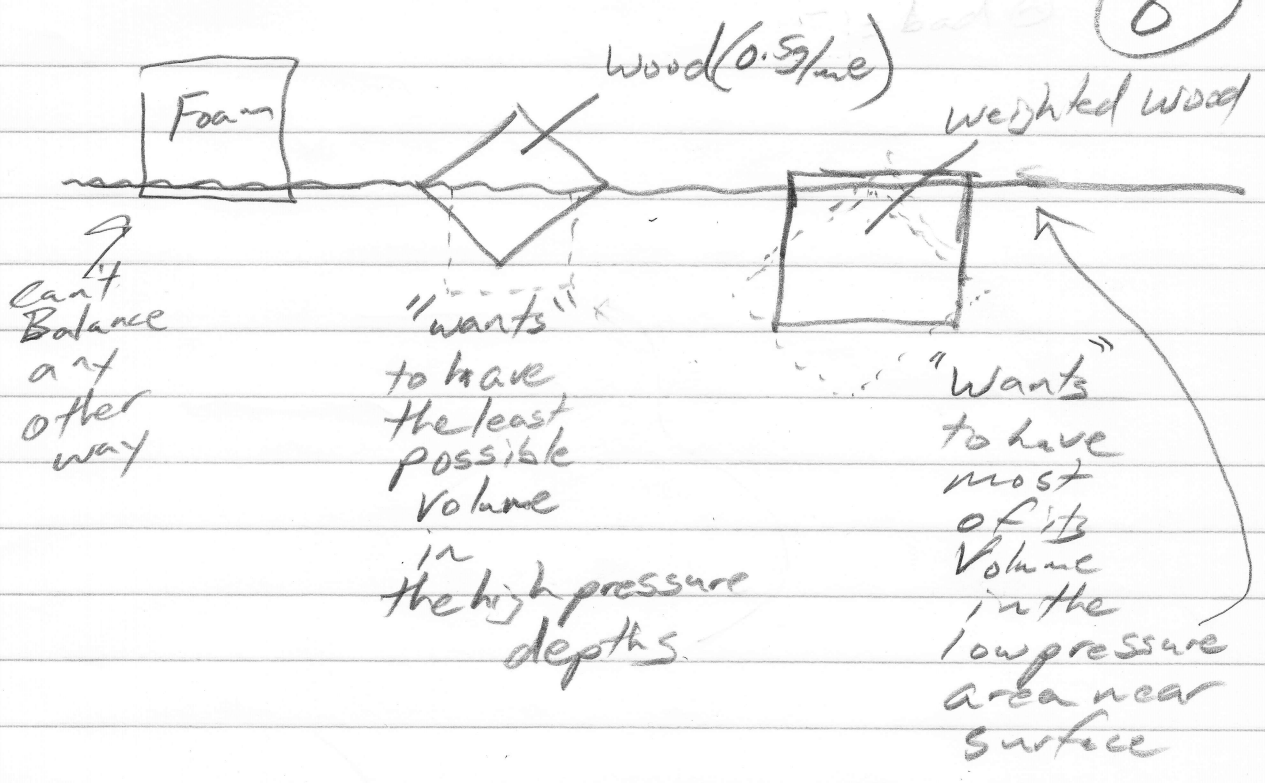 6
Foam
Wood (0.5g/ml)
weighted wood
can't
Balance
any
other
way
"wants"
to have
the least
possible
volume
in
the high pressure
depths.
"Wants"
to have
most
of its
Volume
in the
low pressure
area near
surface